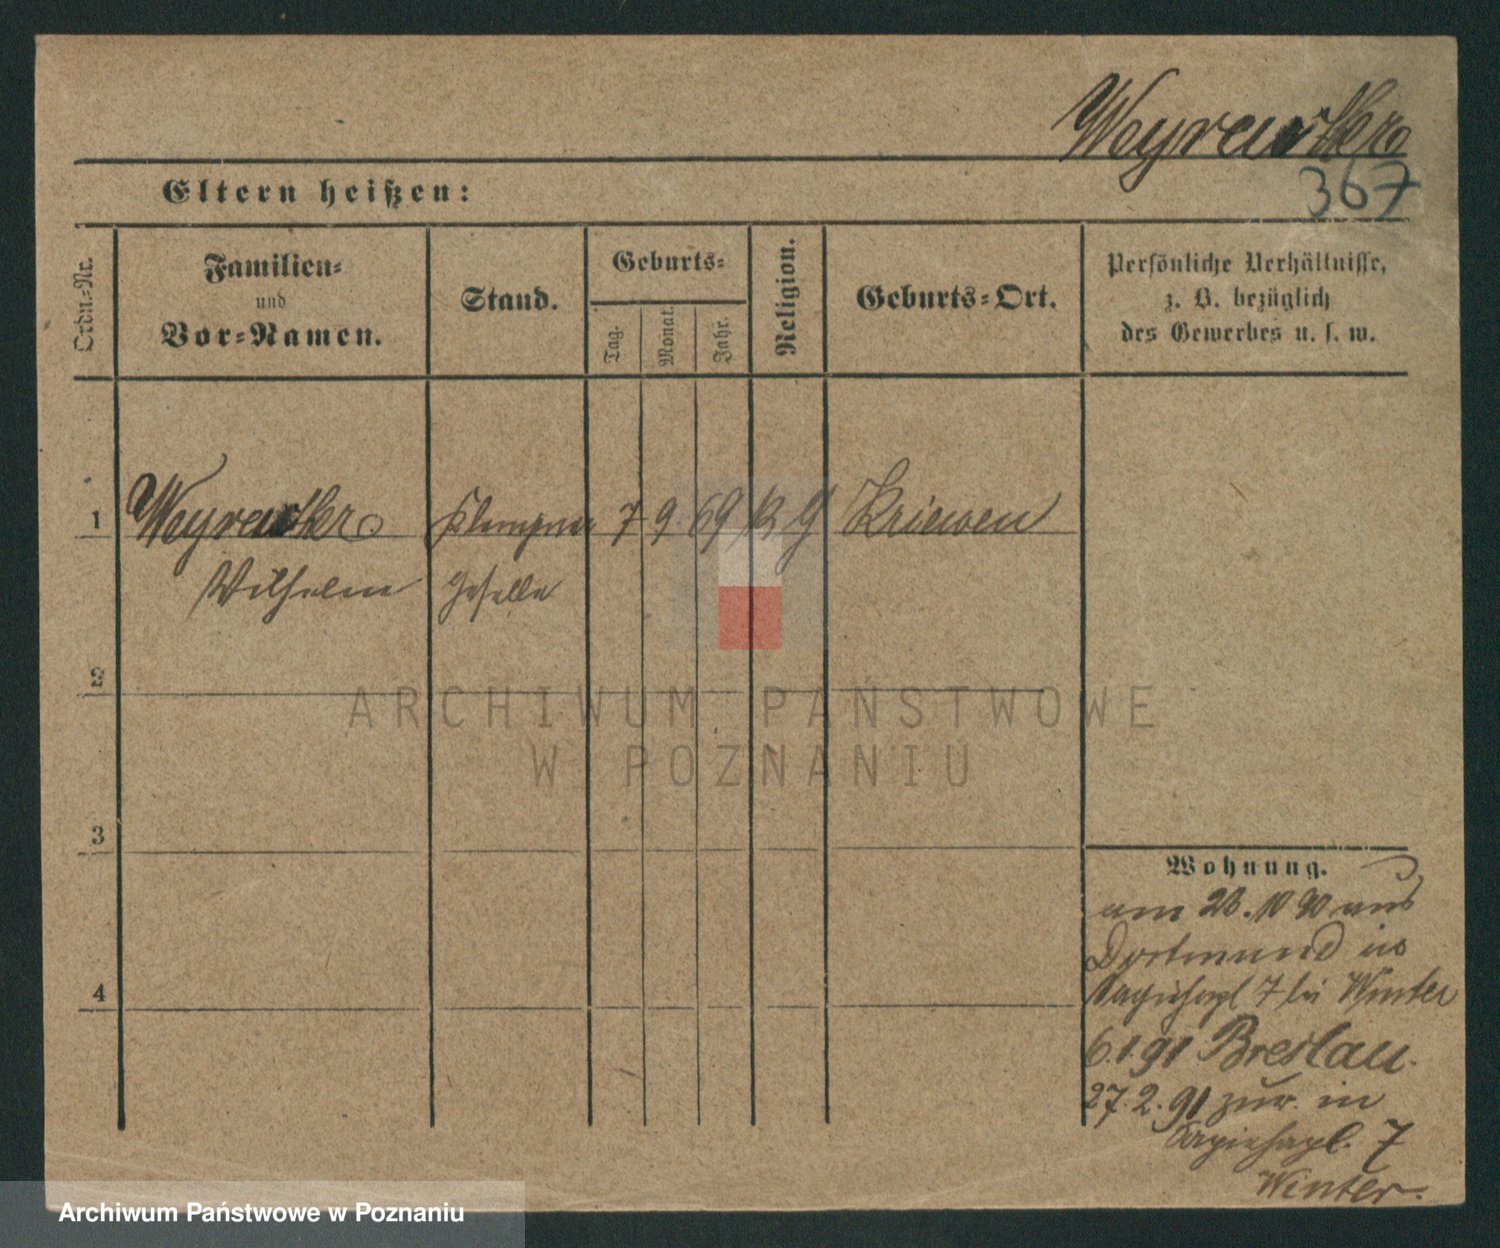 Weyrauther
367
Eltern heißen:
Ordn.-Nr.
Familien-
und
Vor-Namen.
Stand.
Geburts-
Tag.
Monat.
Jahr.
Religion.
Geburts-Ort.
Persönliche Verhältnisse,
z. B. bezüglich
des Gewerbes u. s. w.
1
Klempner 7 9. 69 Kriewen
Wilhelm Geselle
2
3
4
ARCHIWUM PAŃSTWOWE
W POZNANIU
Wohnung.
am 28. 10 90 aus
Dortmund in
7 bei Winter
6. 1. 91 Breslau.
27. 2. 91 zur. in
7
Winter.
Archiwum Państwowe w Poznaniu